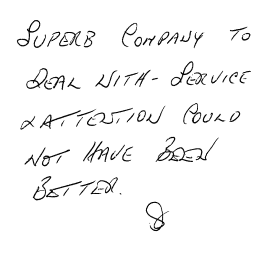 SUPERB COMPANY TO
DEAL WITH - SERVICE
& ATTENTION COULD
NOT HAVE BEEN
BETTER.